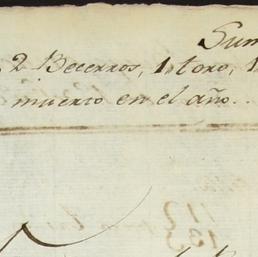 Sum
2 Becerros, 1 toro, 1
muerto en el año..
112
133